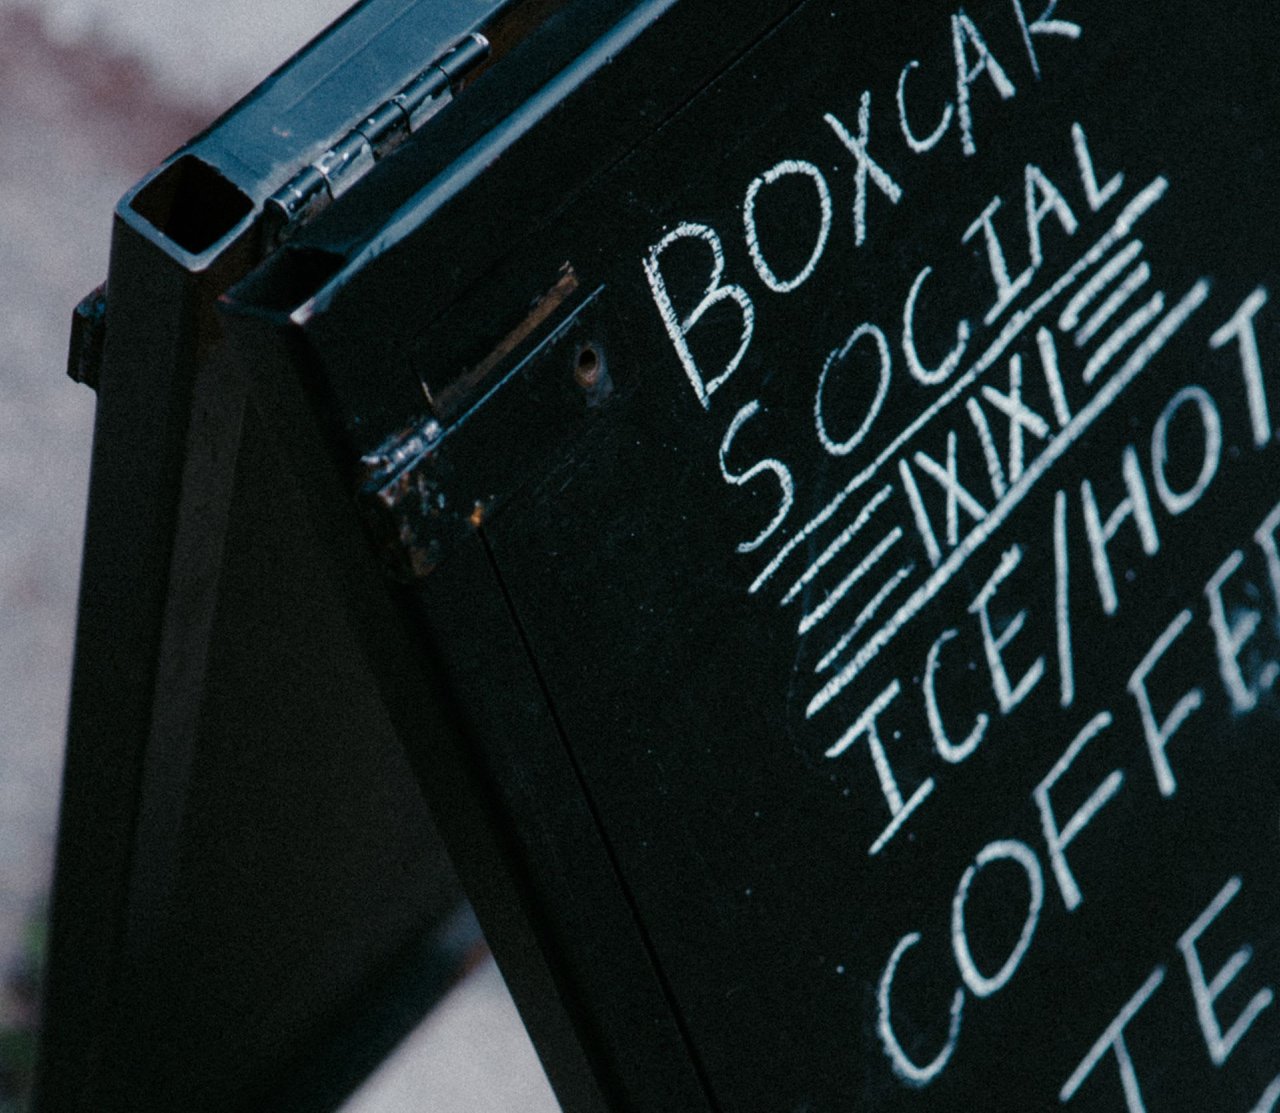 BOXCAR
SOCIAL
ICE/HOT
COFFEE
TE